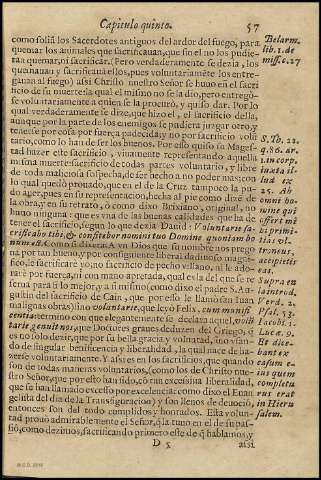 Capitulo quinto. 57
como soliā los Sacerdotes antiguos del ardor del fuego, para
quemar los animales que sacrificauan, que sin el no los pudie-
ra quemar, ni sacrificar. (Pero verdaderamente se dezia, los
quemauan y sacrificauā ellos, pues voluntariamēte los entre-
gauan al fuego) Assi Christo nuestro Señor se huuo en el sacri
ficio de su muerte: la qual el mismo no se la dio, pero entrego-
se voluntariamente a quien se la procurò, y quiso dar. Por lo
qual verdaderamente se dize, que hizo el, el sacrificio della,
aunque por la parte de los enemigos se pudiera juzgar otro, y
tenerse por cosa por fuerça padecida, y no por sacrificio volū
tario, como lo han de ser los buenos. Por esso quiso su Mages-
tad hazer este sacrificio, viuamente representando aquella
misma muerte: sacrificio de todas partes voluntario, y libre
de toda maliciosa sospecha, de ser hecho a no poder mas:
lo qual quedò prouado, que en el de la Cruz tampoco la pu-
do auer, pues en su representacion, hecha al pie como dizē de
la obra, y en su retrato, ò como dizo
huuo ninguna: que es vna de las buenas calidades que ha de
tener el sacrificio, segun lo que dezia Dauid: Voluntarie sa-
crificabo tibi, & confitebor nomini tuo Domine quoniam bo
num est. Como si dixera: A vn Dios que su nombre nos prego
na por tan bueno, y por consiguiente liberal dadiuoso magni
fico, le sacrificarè yo, no sacrificio de pecho villano, ni le ado-
rarè por fuerça, ni con mano apretada, qual es la del que se re
serua para si lo mejor, y a si mismo (como dixo el padre S. Au
gustin del sacrificio de Cain, que por esso le llamò san Iuan
malignas obras) sino voluntarie, que leyò Felix, cum munifi
centia: termino con que elegantemente se declara aquel, volū
tariè genuit nos, que Doctores graues deduzen del Griego, q̄
es no solo dezir, que por su bella gracia y volūtad, sino vsan-
do de singular beneficencia y liberalidad, a la qual nace de ha-
zerse voluntariamente. Y assi es en los sacrificios, que quando
son de todas maneras voluntarios, (como los de Christo nues-
tro Señor, que por esso han sido, cō tan excessiua liberalidad,
que se han llamado excesso por excelencia: como dixo el Euan
gelista del dia de la Transfiguracion) y son llenos de deuociō,
entonces son del todo cumplidos y honrados. Esta volun-
tad prouò admirablemente el Señor, q̄ la tuuo en el de su pas-
sió, como dezimos, sacrificando primero este de q̄ hablamos, y
D 5 assi
Belarm.
lib. 1. de
miss. c. 27
S. Th. 22.
q. 86. ar.
1. in corp.
iuxta il-
lud ex
25. Ab
omni ho-
mine qui
offert mi
hi primi-
tias vl-
troneus,
accipietis
eas.
Supra en
la introd.
Verd. 2.
Psal. 53.
Iacobi. 1.
Luce. 9.
Et dice-
bant ex
cessum e-
ius quem
completu
rus erat
in Hieru
salem.